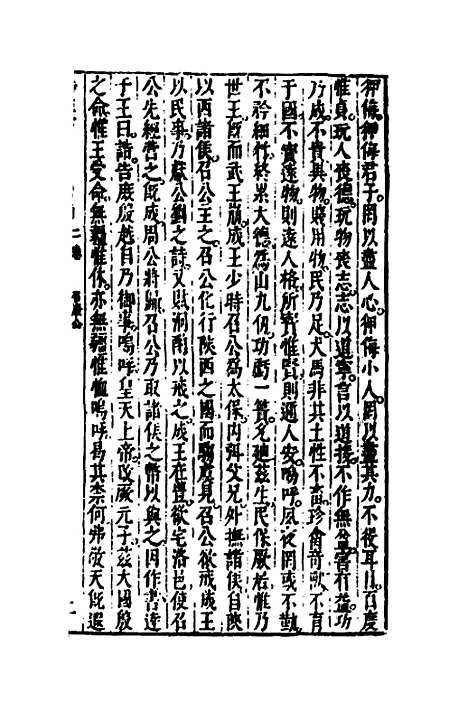 狎侮狎侮君子罔以盡人心狎侮小人罔以盡其力不役耳目百度
惟貞玩人喪德玩物喪志志以道寧言以道接不作無益害有益功
乃成不貴異物賤用物民乃足犬馬非其土性不畜珍禽奇獸不育
于國不寶遠物則遠人格所寶惟賢則邇人安嗚呼夙夜罔或不勤
不矜細行終累大德為山九仞功虧一簣允迪茲生民保厥居惟乃
世王既而武王崩成王少時召公為太保內弭父兄外撫諸侯自陝
以西諸侯召公主之召公化行陝西之國而騶虞見召公欲戒成王
以民事乃獻公劉之詩又賦泂酌以戒之成王在豐欲宅洛邑使召
公先經營之既成周公將歸召公乃取諸侯之幣以與之因作書達
于王曰誥告庶殷越自乃御事嗚呼皇天上帝改厥元子茲大國殷
之命惟王受命無疆惟休亦無疆惟恤嗚呼曷其柰何弗敬天既遐
二卷 召康公